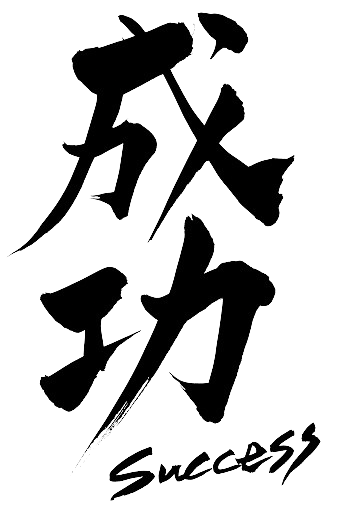 成功
Success